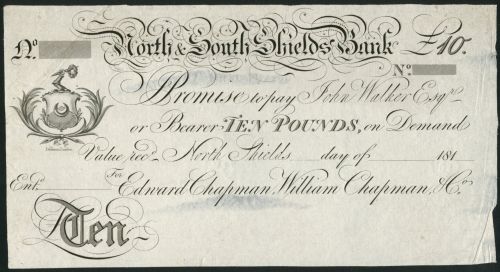 Nº North & South Shields Bank £10.
Nº
Promise to pay John Walker Esqr.
or Bearer TEN POUNDS, on Demand
Value recd. North Shields day of 181
Entd. For Edward Chapman, William Chapman, & Co.
Ten